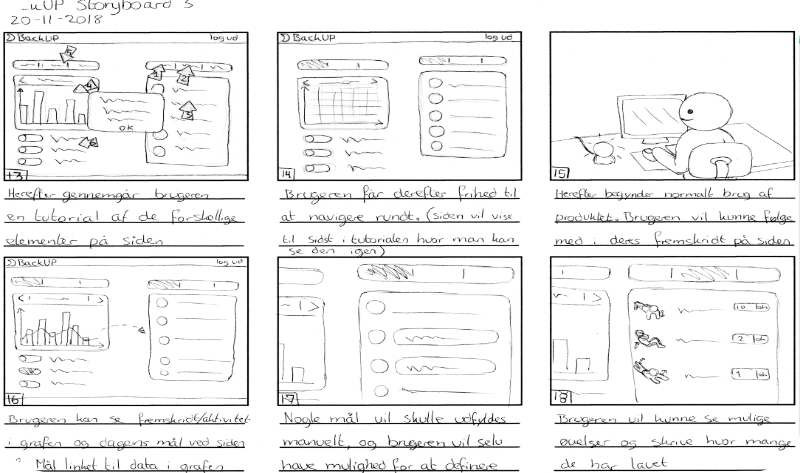 UP Storyboard 3
20-11-2018
BackUP log ud
OK
13
Herefter gennemgår brugeren
en tutorial af de forskellige
elementer på siden
BackUP log ud
14
Brugeren får derefter frihed til
at navigere rundt. (siden vil vise
til sidst i tutorialen hvor man kan
se den igen)
15
Herefter begynder normalt brug af
produktet. Brugeren vil kunne følge
med i deres fremskridt på siden
BackUP log ud
16
Brugeren kan se fremskridt/aktivitet
i grafen og dagens mål ved siden
Mål linket til data i grafen
17
Nogle mål vil skulle udfyldes
manuelt, og brugeren vil selv
have mulighed for at definere
10
2
18
Brugeren vil kunne se mulige
øvelser og skrive hvor mange
de har lavet